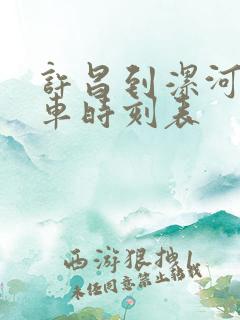 許昌到漯河
車時刻表
西游狠抽1
未经同意禁止转载